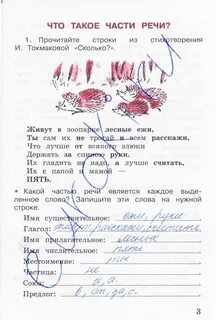 ЧТО ТАКОЕ ЧАСТИ РЕЧИ?
1. Прочитайте строки из стихотворения
И. Токмаковой «Сколько?».
Живут в зоопарке лесные ежи,
Ты сам их не трогай и всем расскажи,
Что лучше от всякого злюки
Держать за спиною руки.
Их гладить не надо, а лучше считать,
Их с папой и мамой —
ПЯТЬ.
• Какой частью речи является каждое выде-
ленное слово? Запишите эти слова на нужной
строке.
Имя существительное: ежи, руки
Глагол: живут, расскажи, считать
Имя прилагательное: лесные
Имя числительное: пять
Местоимение: ты
Частица: не
Союз: и, а
Предлог: в, от, за, с.
3